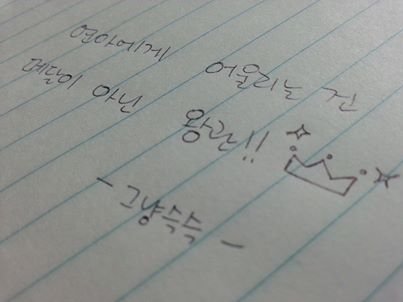 연아에게 어울리는 건
메달이 아닌 왕관!!
- 그냥슥슥 -